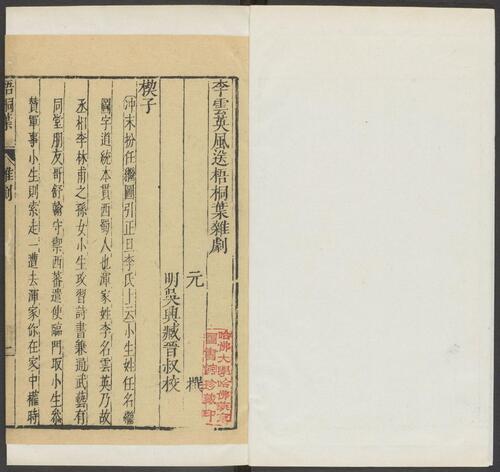 李雲英風送梧桐葉雜劇
元　　　　撰
明吳興臧晉叔校
楔子
冲末扮任繼圖引正旦李氏上云小生姓任名繼
圖字道統本貫西蜀人也渾家姓李名雲英乃故
丞相李林甫之孫女小生攻習詩書兼通武藝有
同堂朋友哥舒翰守禦西蕃遣使臨門取小生叅
贊軍事小生則索走一遭去渾家你在家中權時
梧桐葉
雜劇
一
哈佛大學哈佛燕京
圖書館珍藏印